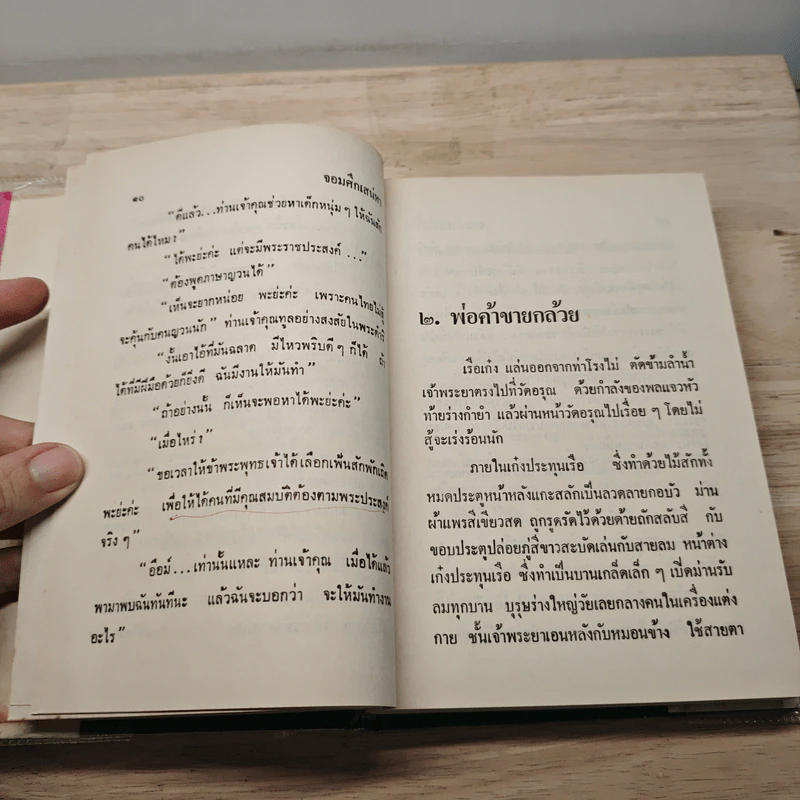 ๑๐
จอมศึกเสน่หา
“ดีแล้ว...ท่านเจ้าคุณช่วยหาเด็กหนุ่ม ๆ ให้ฉันสัก
คนได้ไหม?
“ได้พะย่ะค่ะ แต่จะมีพระราชประสงค์ ...”
“ต้องพูดภาษาญวนได้”
“เห็นจะยากหน่อย พะย่ะค่ะ เพราะคนไทยไม่สู้
จะคุ้นกับคนญวนนัก” ท่านเจ้าคุณทูลอย่างสงสัยในพระดำริ
“งั้นเอาไอ้ที่มันฉลาด มีไหวพริบดี ๆ ก็ได้ ถ้า
ได้ที่มีฝีมือด้วยก็ยิ่งดี ฉันมีงานให้มันทำ”
“ถ้าอย่างนั้น ก็เห็นจะพอหาได้พะย่ะค่ะ”
“เมื่อไหร่?”
“ขอเวลาให้ข้าพระพุทธเจ้าได้เลือกเฟ้นสักพักเถิด
พะย่ะค่ะ เพื่อให้ได้คนที่มีคุณสมบัติต้องตามพระประสงค์
จริง ๆ”
“อือม์...เท่านั้นแหละ ท่านเจ้าคุณ เมื่อได้แล้ว
พามาพบฉันทันทีนะ แล้วฉันจะบอกว่า จะให้มันทำงาน
อะไร”
๒. พ่อค้าขายกล้วย
เรือเก๋ง แล่นออกจากท่าโรงโม่ ตัดข้ามลำน้ำ
เจ้าพระยาตรงไปที่วัดอรุณ ด้วยกำลังของพลแจวหัว
ท้ายร่างกำยำ แล้วผ่านหน้าวัดอรุณไปเรื่อย ๆ โดยไม่
สู้จะเร่งร้อนนัก
ภายในเก๋งประทุนเรือ ซึ่งทำด้วยไม้สักทั้ง
หมดประตูหน้าหลังแกะสลักเป็นลวดลายกอบัว ม่าน
ผ้าแพรสีเขียวสด ถูกรูดรัดไว้ด้วยด้ายถักสลับสี กับ
ขอบประตูปล่อยภู่สีขาวสะบัดเล่นกับสายลม หน้าต่าง
เก๋งประทุนเรือ ซึ่งทำเป็นบานเกล็ดเล็ก ๆ เปิดม่านรับ
ลมทุกบาน บุรุษร่างใหญ่วัยเลยกลางคนในเครื่องแต่ง
กาย ชั้นเจ้าพระยาเอนหลังกับหมอนข้าง ใช้สายตา